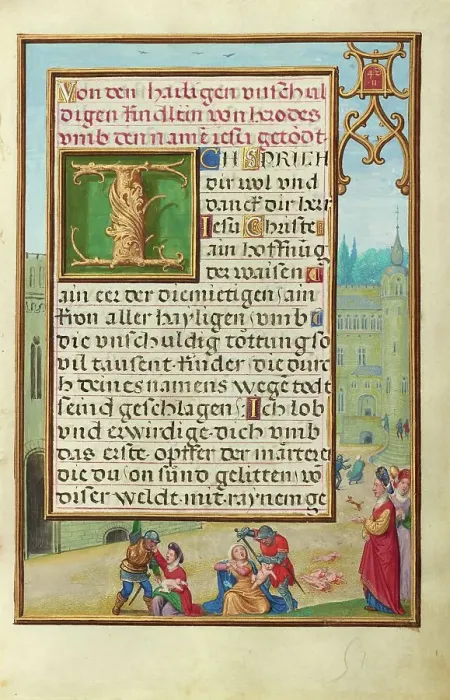 Von den hailigen vnschul
digen kindlein von herodes
vmb den namē iesu getödt
ICH SPRICH
dir wol vnd
danck dir herr
Iesu Christe
ain hoffnūg
der waisen
ain eer der diemietigen ain
kron aller hayligen vmb
die vnschuldig töttung so
vil tausent kinder die durc
h deines namens wege todt
seind geschlagen Ich lob
vnd erwirdige dich vmb
das erste opffer der märterer
die du on sünd gelitten vō
diser weldt mit raynem ge